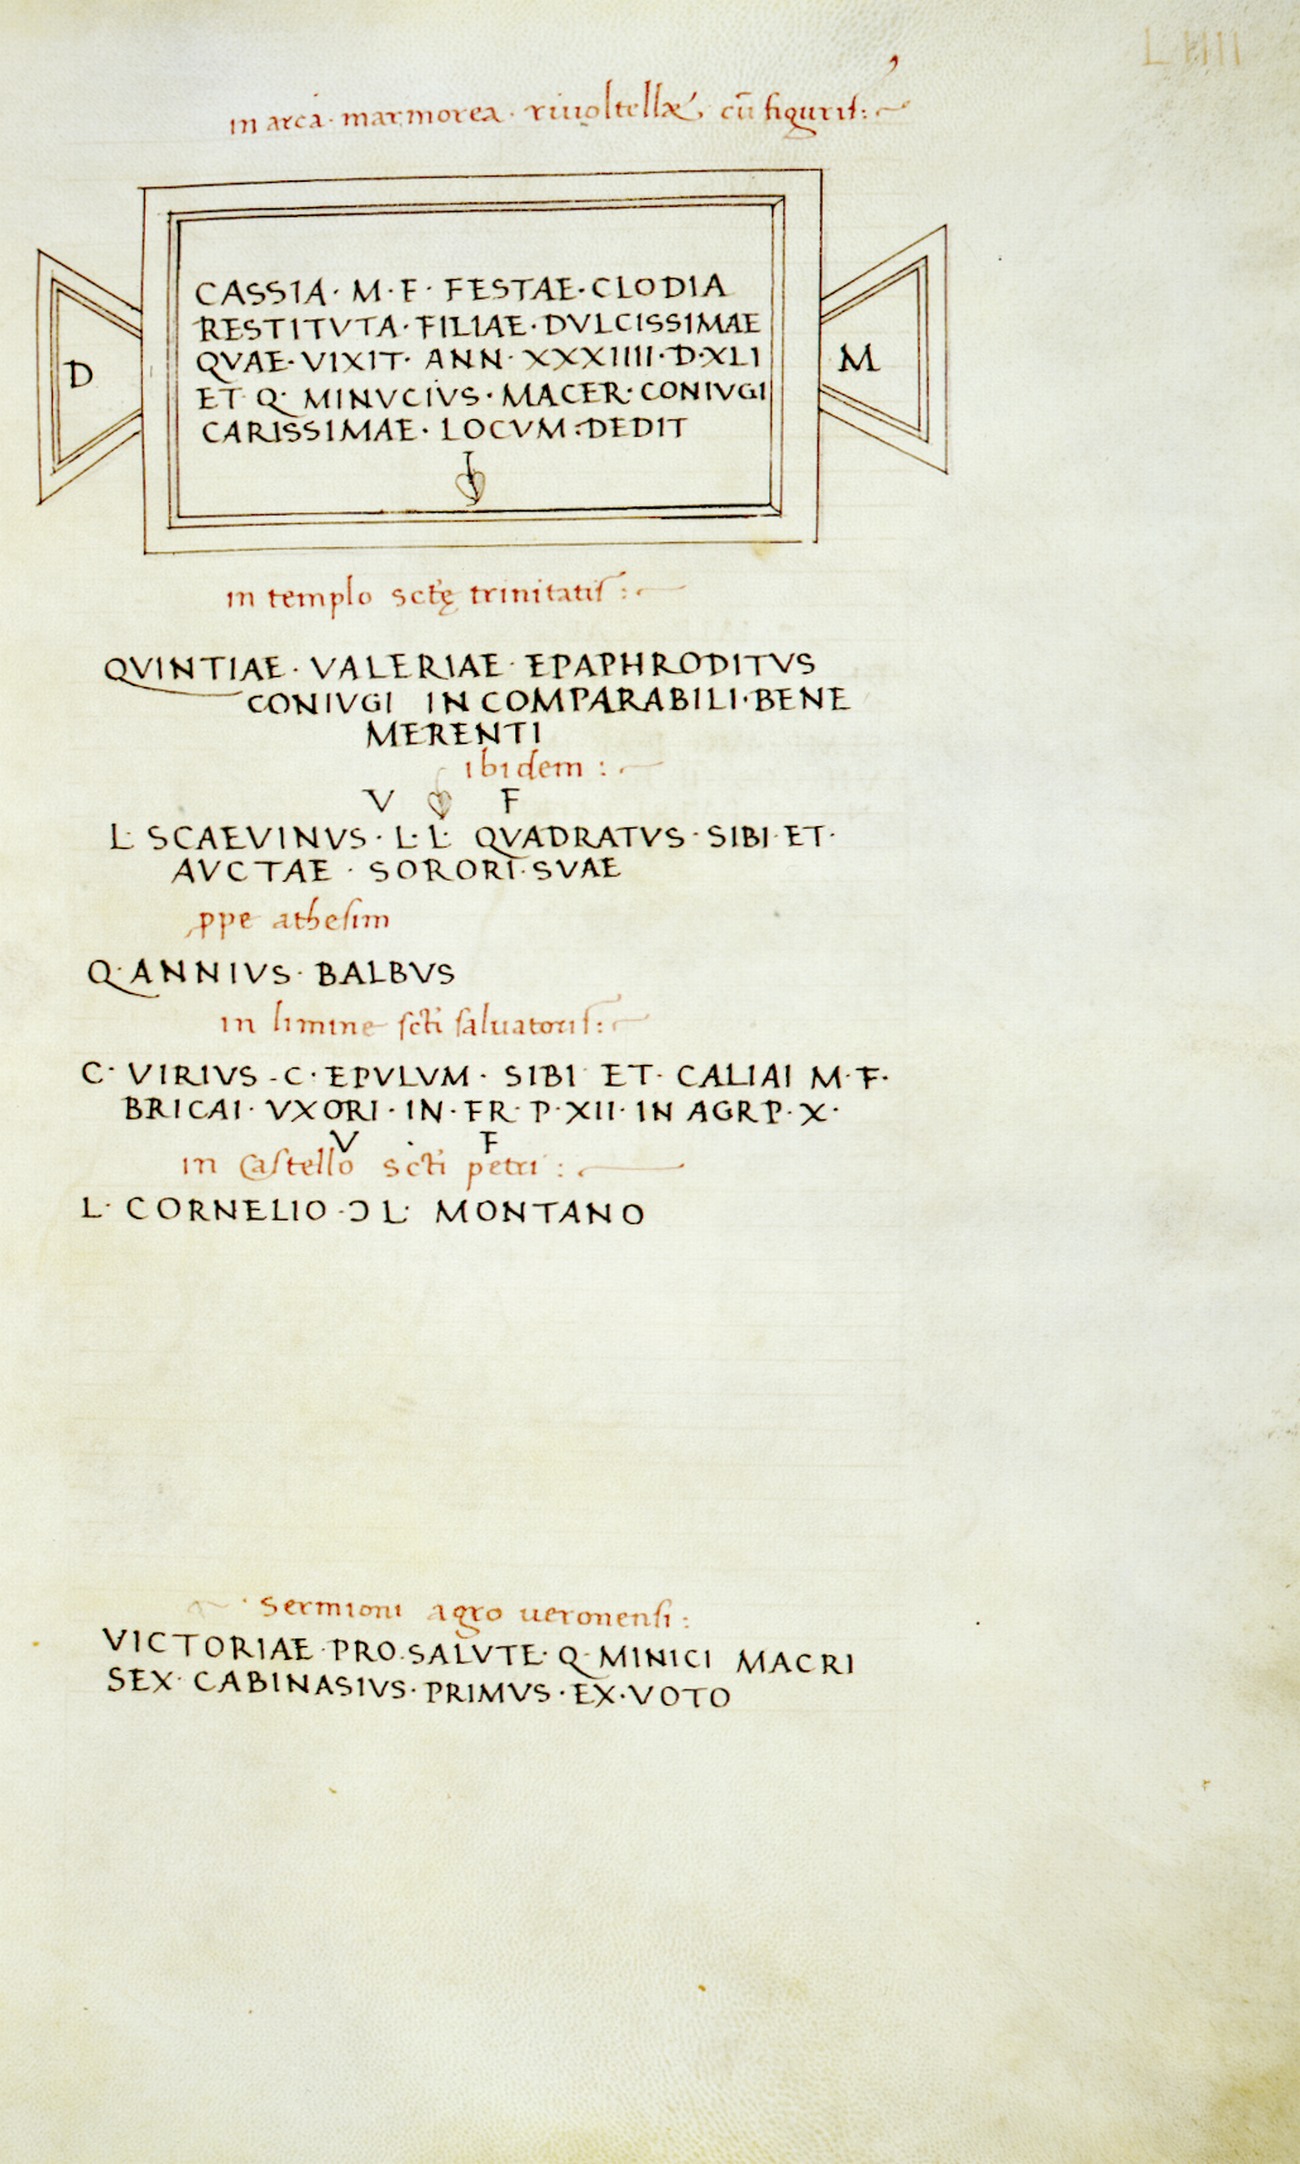 L IIII
in arca · marmorea · riuoltellæ, cū figuris:
CASSIA · M · F · FESTAE · CLODIA
RESTITVTA · FILIAE · DVLCISSIMAE
QVAE · VIXIT · ANN · XXXIIII · D · XLI
ET Q · MINVCIVS · MACER · CONIVGI
CARISSIMAE · LOCVM · DEDIT
D
M
in templo sctę trinitatis:
QVINTIAE · VALERIAE · EPAPHRODITVS
CONIVGI IN COMPARABILI · BENE
MERENTI
ibidem :
V F
L · SCAEVINVS · L · L · QVADRATVS · SIBI · ET ·
AVCTAE · SORORI · SVAE
ꝓpe athesim
Q · ANNIVS · BALBVS
in limine scti saluatoris:
C · VIRIVS - C · EPVLVM · SIBI ET · CALIAI M · F ·
BRICAI · VXORI · IN · FR · P · XII · IN AGR P · X ·
V · F
in Castello scti petri :
L · CORNELIO · Ɔ L · MONTANO
Sermioni agro ueronensi :
VICTORIAE · PRO · SALVTE · Q · MINICI MACRI
SEX · CABINASIVS · PRIMVS · EX · VOTO